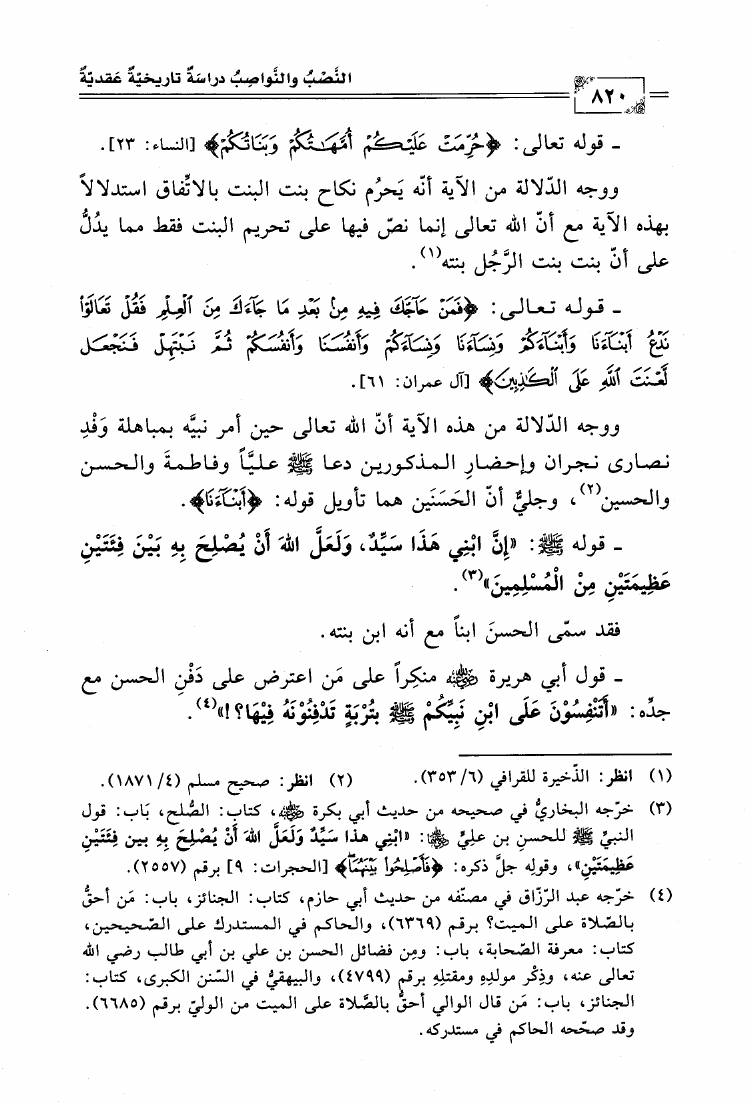 النَّصْبُ والنَّواصِبُ دراسَةٌ تاريخيّةٌ عَقديّةٌ
٨٢٠
ـ قوله تعالى: ﴿حُرِّمَتْ عَلَيْكُمْ أُمَّهَاتُكُمْ وَبَنَاتُكُمْ﴾ [النساء: ٢٣].
ووجه الدّلالة من الآية أنّه يَحرُم نكاح بنت البنت بالاتِّفاق استدلالاً
بهذه الآية مع أنّ الله تعالى إنما نصّ فيها على تحريم البنت فقط مما يدُلُّ
على أنّ بنت بنت الرَّجُل بنته(١).
ـ قـولـه تـعـالـى: ﴿فَمَنْ حَآجَّكَ فِيهِ مِنۢ بَعْدِ مَا جَآءَكَ مِنَ ٱلْعِلْمِ فَقُلْ تَعَالَوْا۟
نَدْعُ أَبْنَآءَنَا وَأَبْنَآءَكُمْ وَنِسَآءَنَا وَنِسَآءَكُمْ وَأَنفُسَنَا وَأَنفُسَكُمْ ثُمَّ نَبْتَهِلْ فَنَجْعَل
لَّعْنَتَ ٱللَّهِ عَلَى ٱلْكَٰذِبِينَ﴾ [آل عمران: ٦١].
ووجه الدّلالة من هذه الآية أنّ الله تعالى حين أمر نبيَّه بمباهلة وَفْدِ
نصارى نجران وإحضارِ المذكورين دعا ﷺ عليّاً وفاطمةَ والحسن
والحسين(٢)، وجليٌّ أنّ الحَسَنَين هما تأويل قوله: ﴿أَبْنَآءَنَا﴾.
ـ قوله ﷺ: «إِنَّ ابْنِي هَذَا سَيِّدٌ، وَلَعَلَّ اللهَ أَنْ يُصْلِحَ بِهِ بَيْنَ فِئَتَيْنِ
عَظِيمَتَيْنِ مِنْ الْمُسْلِمِينَ»(٣).
فقد سمّى الحسنَ ابناً مع أنه ابن بنته.
ـ قول أبي هريرة رضي الله عنه منكِراً على مَن اعترض على دَفْنِ الحسن مع
جدِّه: «أَتَنْفِسُوْنَ عَلَى ابْنِ نَبِيِّكُمْ ﷺ بِتُرْبَةٍ تَدْفِنُوْنَهُ فِيْهَا؟!»(٤).
(١) انظر: الذّخيرة للقرافي (٦/ ٣٥٣). (٢) انظر: صحيح مسلم (٤/ ١٨٧١).
(٣) خرّجه البخاريُّ في صحيحه من حديث أبي بكرة رضي الله عنه، كتاب: الصُّلح، بَاب: قول
النبيِّ ﷺ للحسنِ بن عليّ رضي الله عنهما: «ابْنِي هذا سَيِّدٌ وَلَعَلَّ اللهَ أَنْ يُصْلِحَ بِهِ بين فِئَتَيْنِ
عَظِيمَتَيْنِ»، وقولِه جلَّ ذكره: ﴿فَأَصْلِحُوا۟ بَيْنَهُمَا﴾ [الحجرات: ٩] برقم (٢٥٥٧).
(٤) خرّجه عبد الرّزّاق في مصنّفه من حديث أبي حازم، كتاب: الجنائز، باب: مَن أحقُّ
بالصّلاة على الميت؟ برقم (٦٣٦٩)، والحاكم في المستدرك على الصّحيحين،
كتاب: معرفة الصّحابة، باب: ومِن فضائل الحسن بن علي بن أبي طالب رضي الله
تعالى عنه، وذِكْر مولدِهِ ومقتلِهِ برقم (٤٧٩٩)، والبيهقيُّ في السّنن الكبرى، كتاب:
الجنائز، باب: مَن قال الوالي أحقُّ بالصَّلاة على الميت من الوليّ برقم (٦٦٨٥).
وقد صحّحه الحاكم في مستدركه.